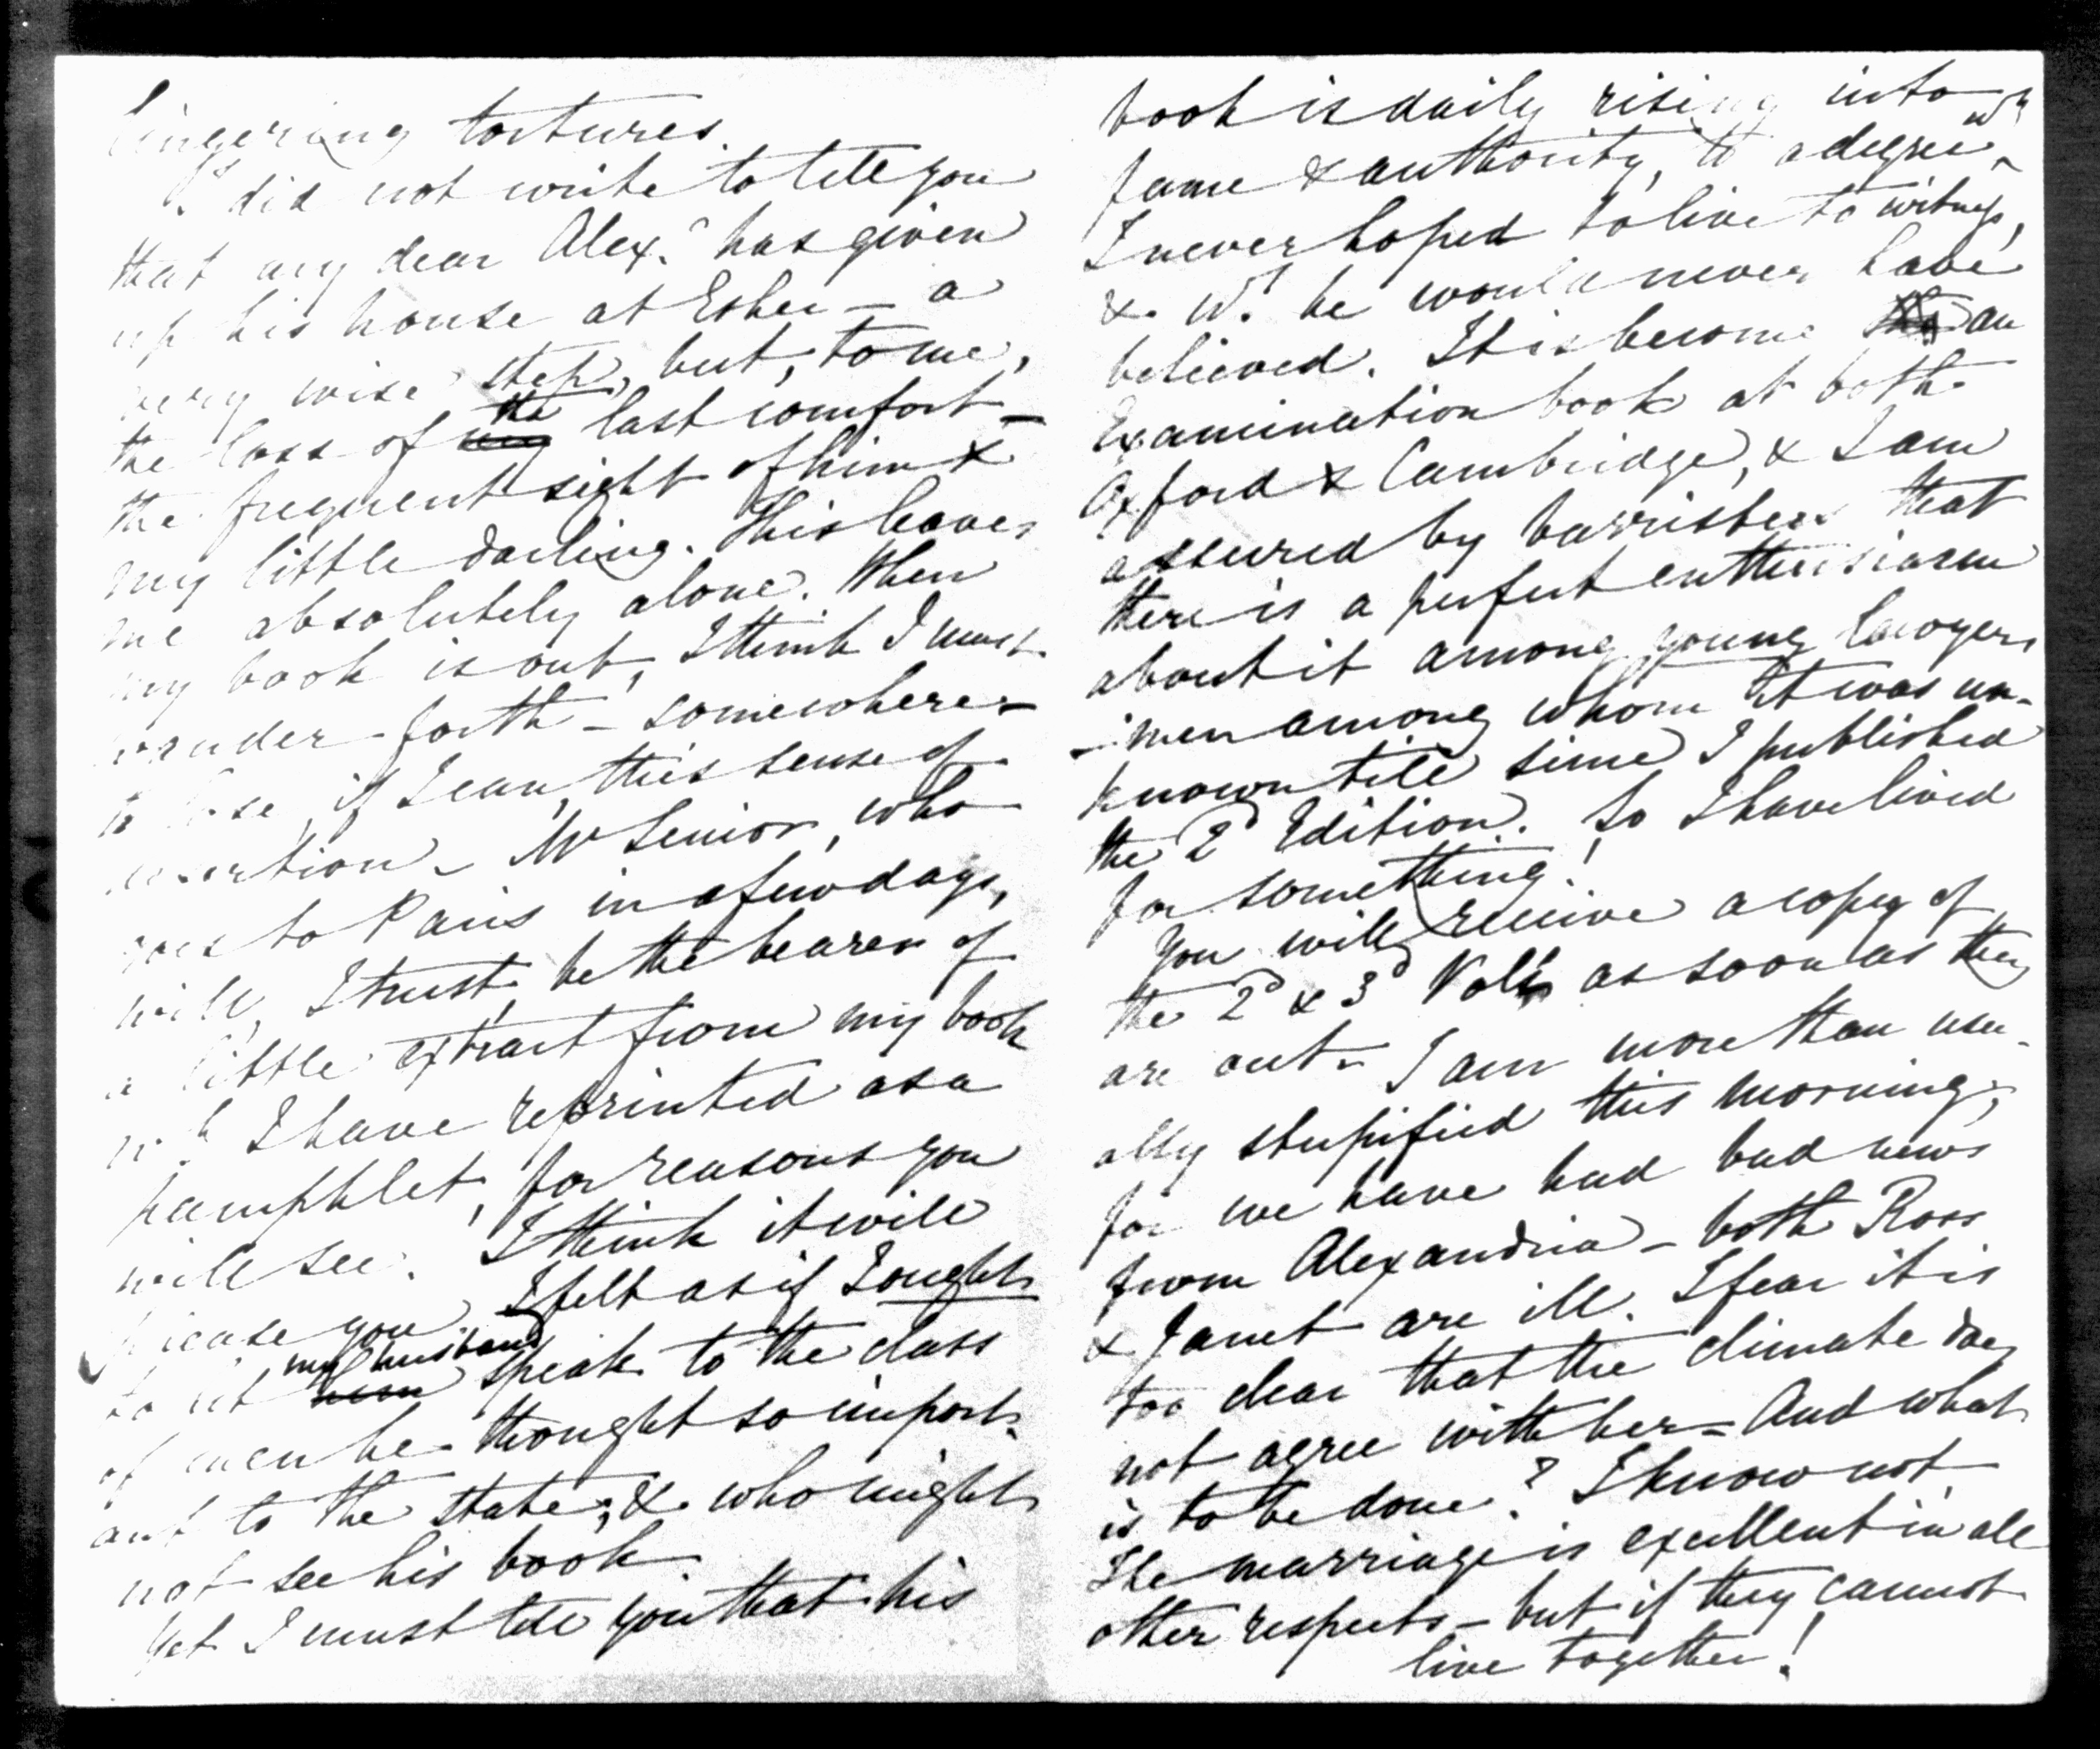 lingering tortures.
I did not write to tell you
that my dear Alexr. has given
up his house at Esher – a
very wise step, but, to me,
the loss of my the last comfort –
the frequent sight of him &
my little darling. This leaves
me absolutely alone. When
my book is out, I think I must
wander forth – somewhere –
to lose, if I can, this sense of
desertion – Mr Senior, who
goes to Paris in a few days,
will, I trust, be the bearer of
a little extract from my book
wh I have reprinted as a
pamphlet, for reasons you
will see. I think it will
please you I felt as if I ought
to let him my husband speak to the class
of men he thought so import-
ant to the state, & who might
not see his book.
Yet I must tell you that his
book is daily rising into
fame & authority, to a degree wh
I never hoped to live to witness,
& wh he would never have
believed. It is become the an
Examination book at both
Oxford & Cambridge, & I am
assured by barristers that
there is a perfect enthusiasm
about it among young lawyers
– men among whom it was un-
known till since I published
the 2d Edition. So I have lived
for something!
You will receive a copy of
the 2d & 3d Vols as soon as they
are out – I am more than usu-
ally stupified this morning,
for we have had bad news
from Alexandria – both Ross
& Janet are ill. I fear it is
too clear that the climate does
not agree with her – And what
is to be done? I know not.
The marriage is excellent in all
other respects – but if they cannot
live together!